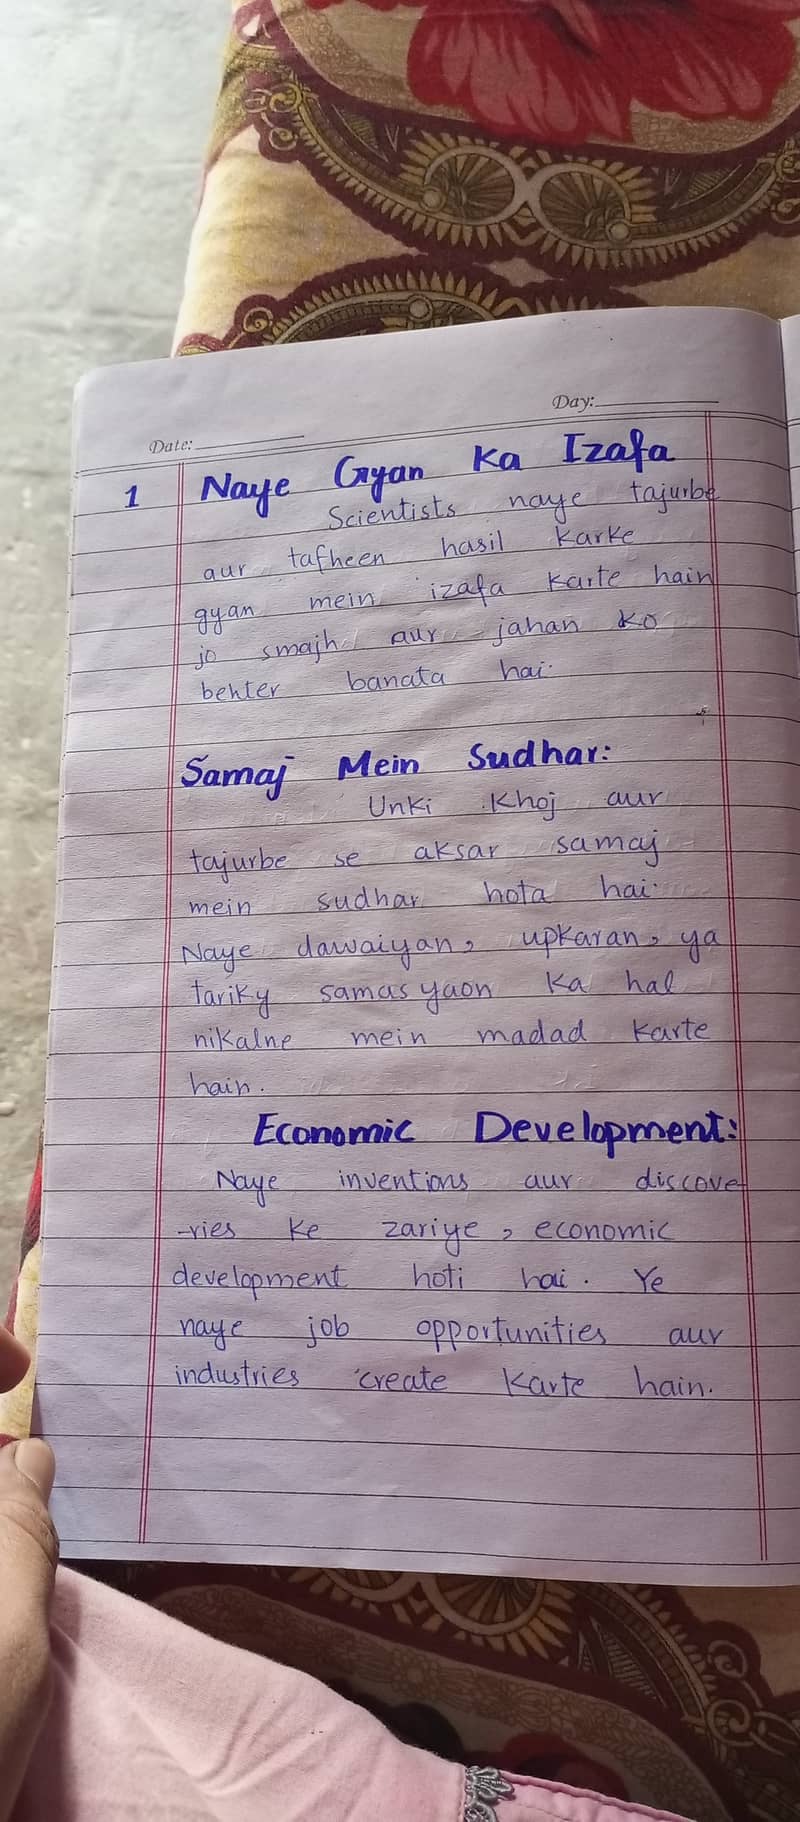 Date:
Day:
1 Naye Gyan Ka Izafa
Scientists naye tajurbe
aur tafheen hasil karke
gyan mein izafa karte hain
jo smajh aur jahan ko
behter banata hai.
Samaj Mein Sudhar:
Unki khoj aur
tajurbe se aksar samaj
mein sudhar hota hai.
Naye dawaiyan, upkaran, ya
tariky samasyaon ka hal
nikalne mein madad karte
hain.
Economic Development:
Naye inventions aur discove
-ries ke zariye, economic
development hoti hai. Ye
naye job opportunities aur
industries create karte hain.